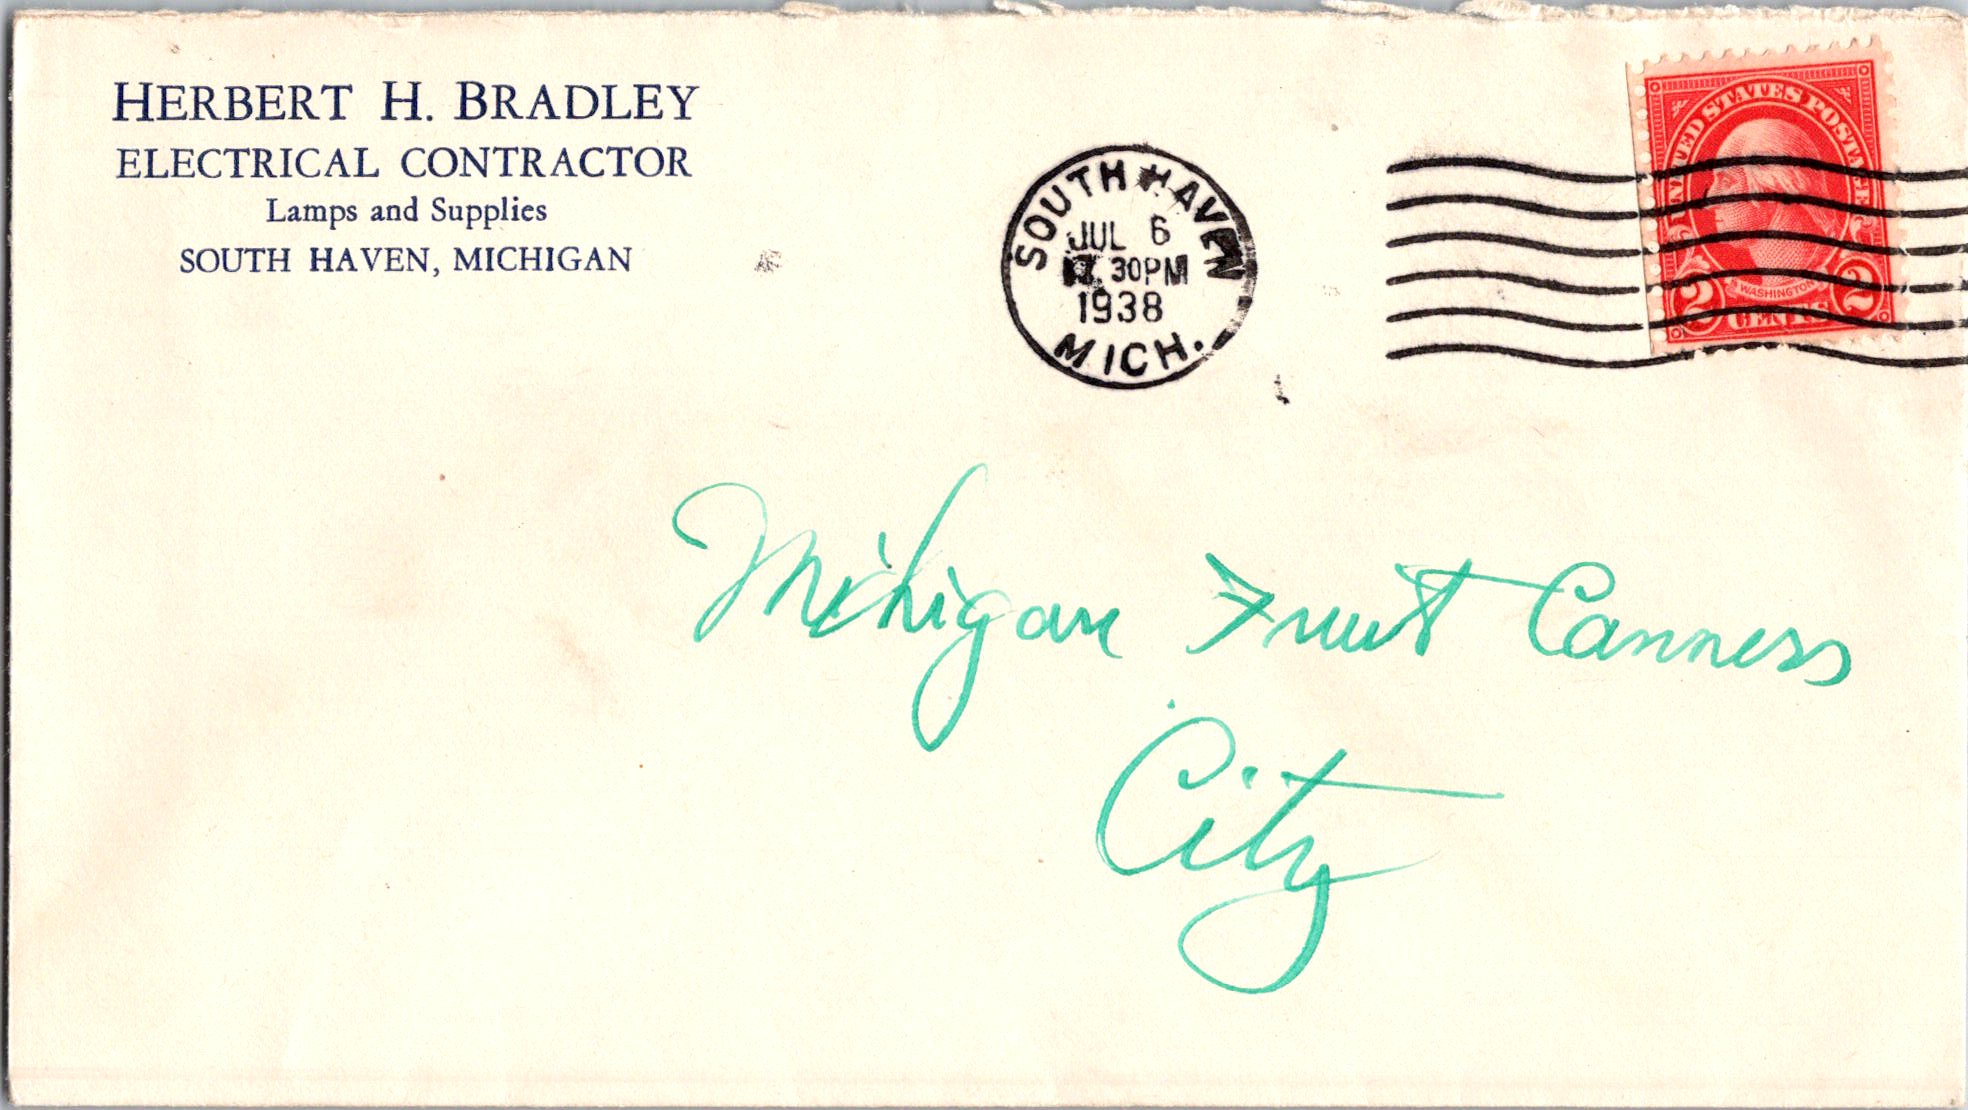 HERBERT H. BRADLEY
ELECTRICAL CONTRACTOR
Lamps and Supplies
SOUTH HAVEN, MICHIGAN
SOUTH HAVEN
JUL 6
30PM
1938
MICH.
UNITED STATES POSTAGE
WASHINGTON
2 CENTS 2
Michigan Fruit Canners
City